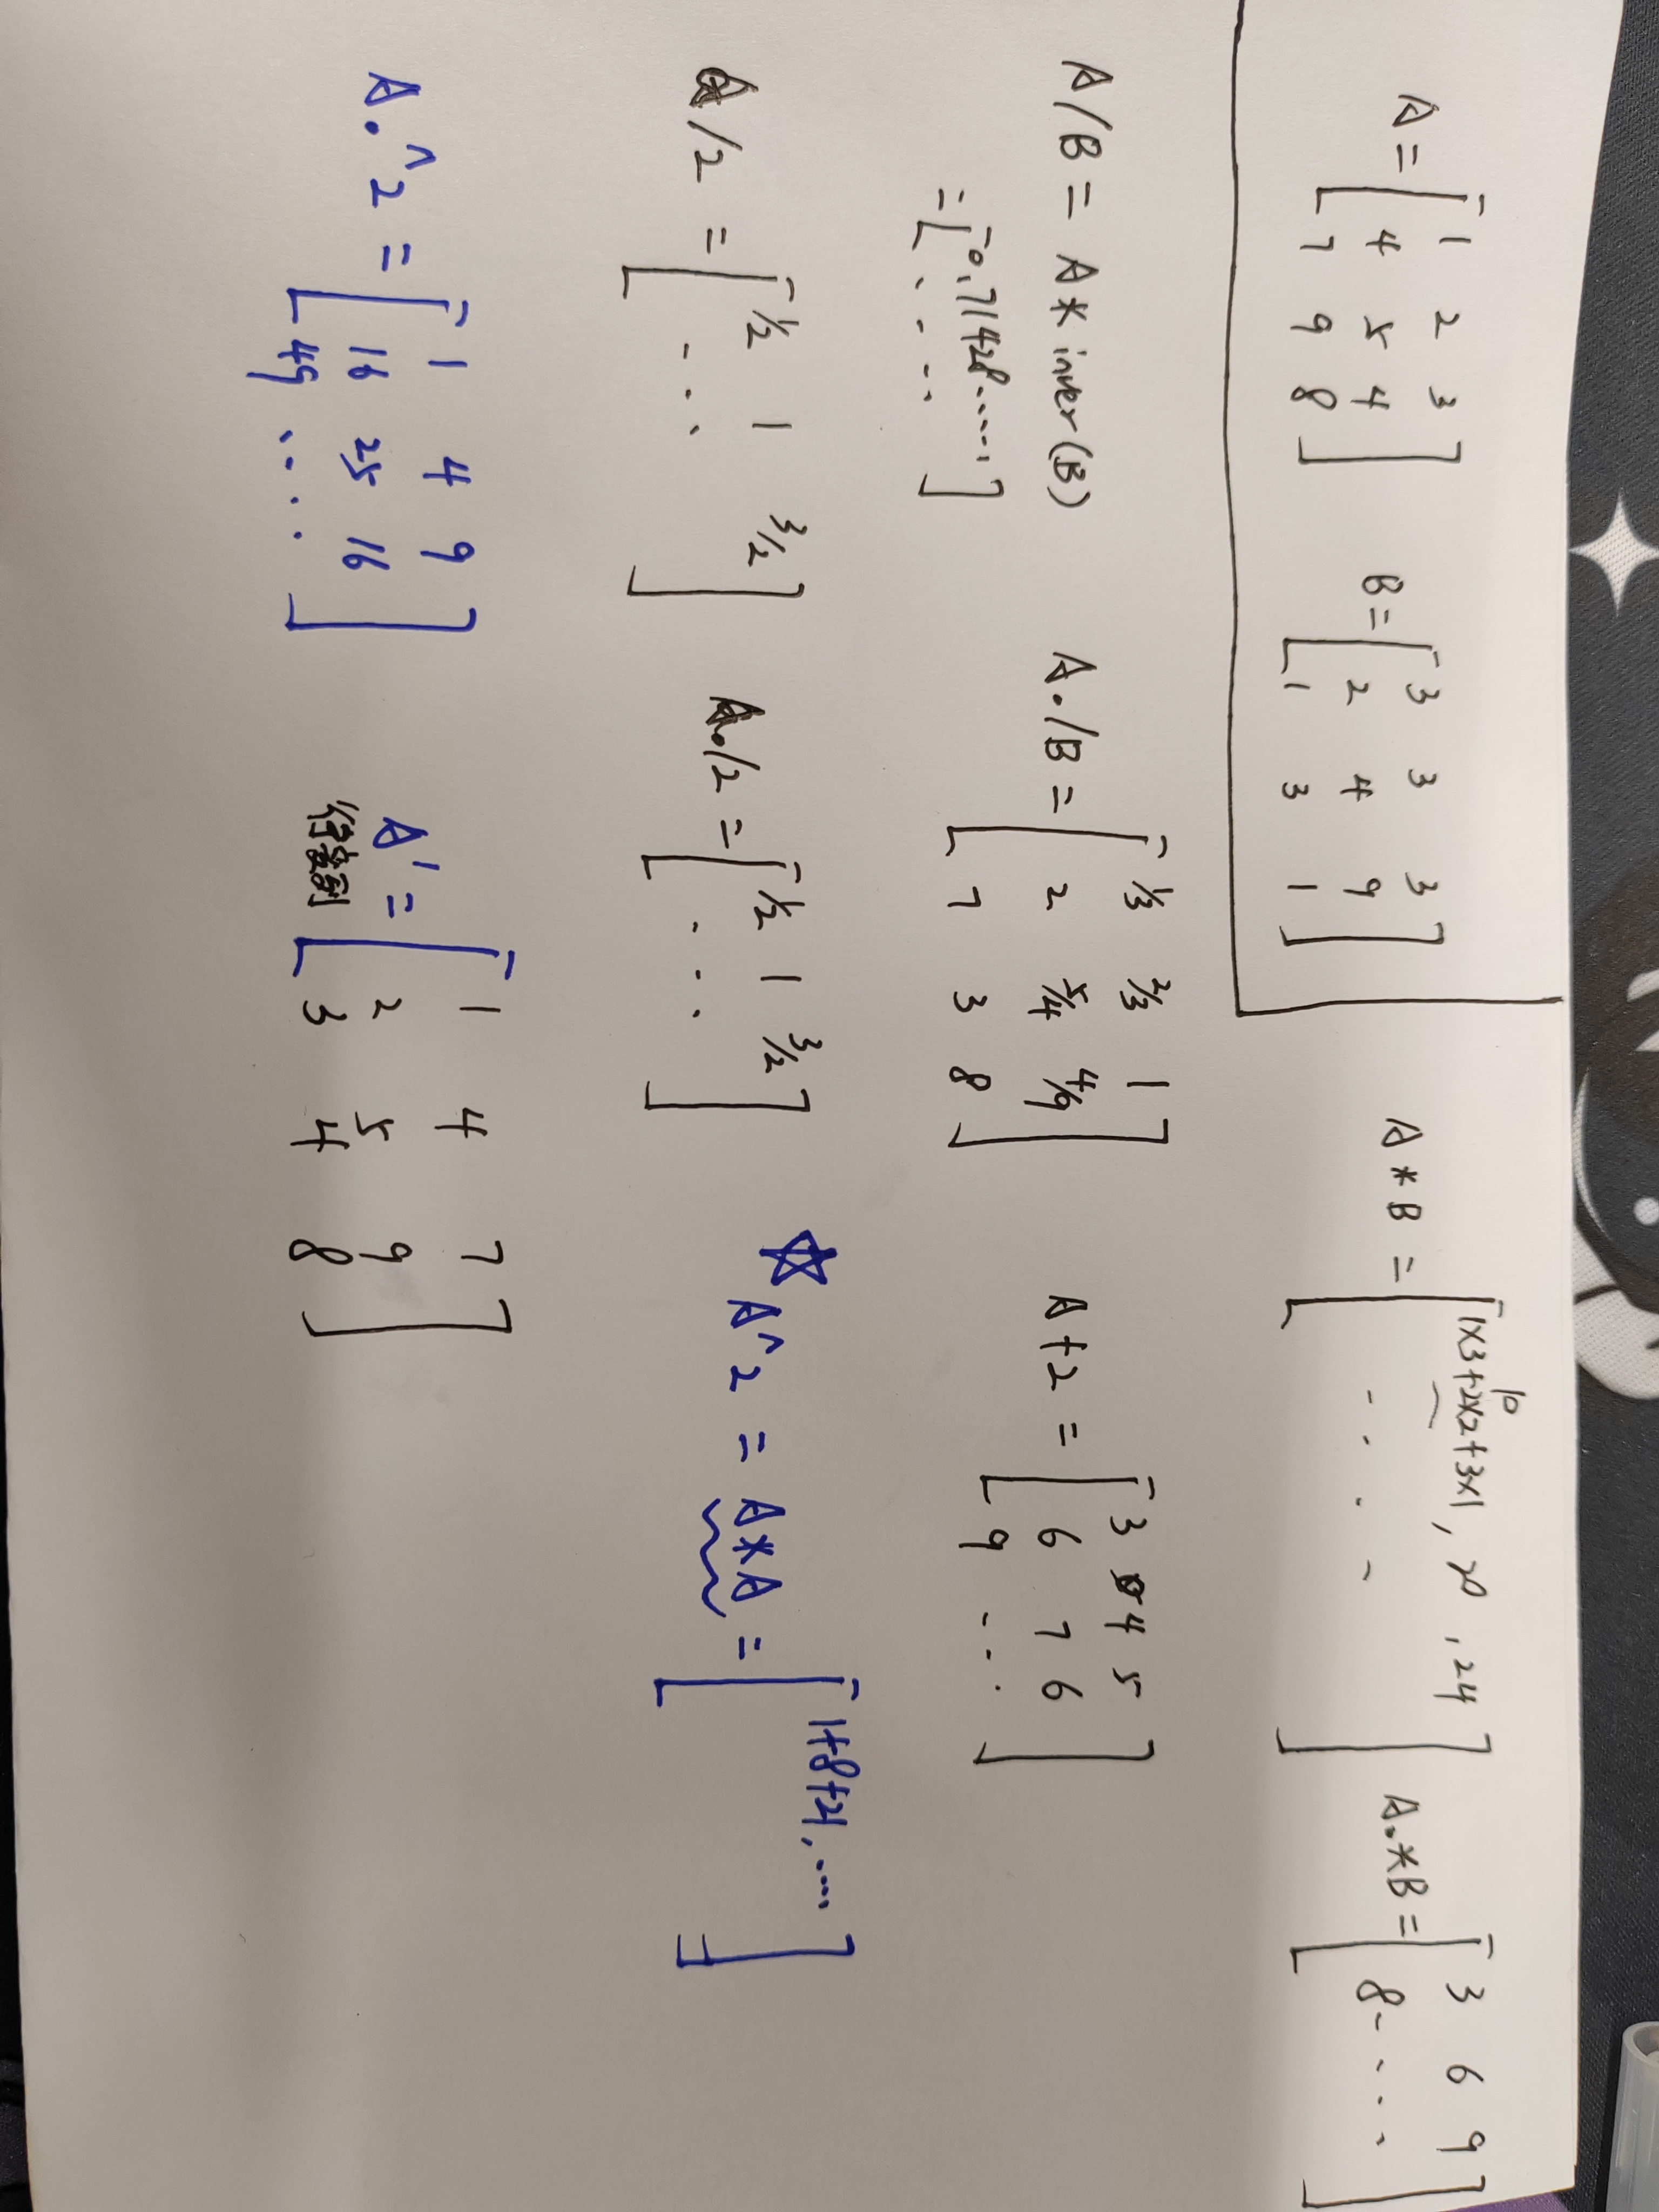 A = [1 2 3
4 5 4
7 9 8]
B = [3 3 3
2 4 9
1 3 1]
10
A * B = [1×3+2×2+3×1, 20, 24
- - . -]
A.*B = [3 6 9
8- . . .]
A/B = A * inver(B)
= [0.71428.....
. . . .]
A./B = [1/3 2/3 1
2 5/4 4/9
7 3 8]
A+2 = [3 4 5
6 7 6
9 ...]
A/2 = [1/2 1 3/2
...]
A./2 = [1/2 1 3/2
...]
☆ A^2 = A*A = [1+8+21, ....]
A.^2 = [1 4 9
16 25 16
49 ....]
A' = [1 4 7
2 5 9
3 4 8]
行变列